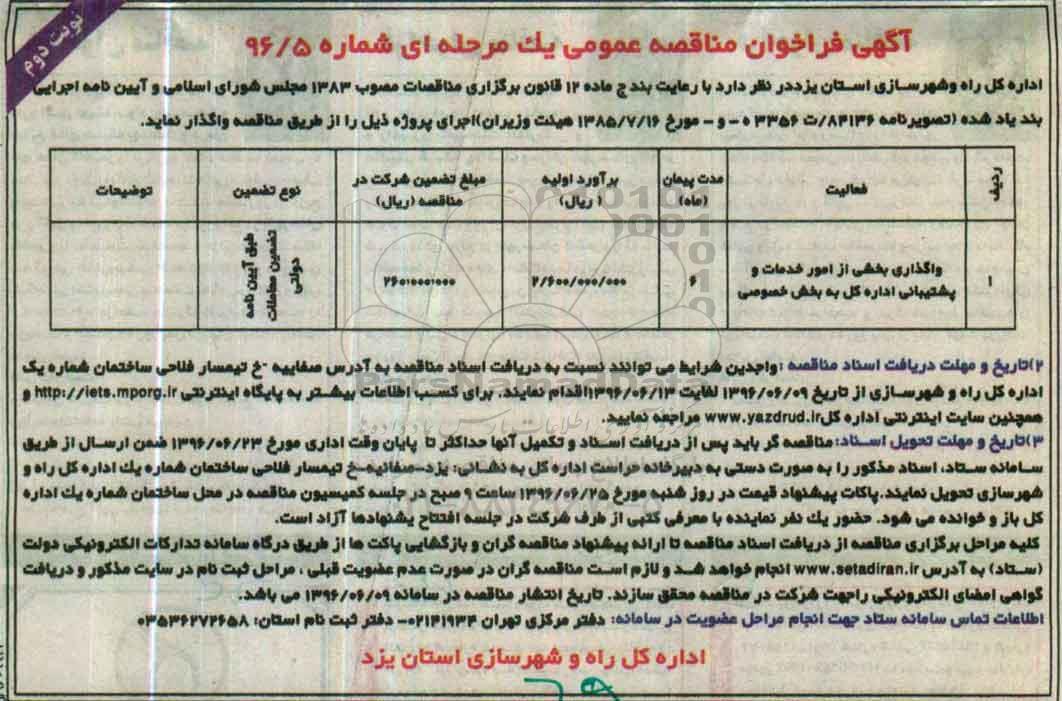 نوبت دوم
آگهی فراخوان مناقصه عمومی یک مرحله ای شماره ۹۶/۵
اداره کل راه وشهرسازی استان یزددر نظر دارد با رعایت بند ج ماده ۱۲ قانون برگزاری مناقصات مصوب ۱۳۸۳ مجلس شورای اسلامی و آیین نامه اجرایی
بند یاد شده (تصویرنامه ۸۴۱۳۶/ت ۳۳۵۶ ه - و - مورخ ۱۳۸۵/۷/۱۶ هیئت وزیران)اجرای پروژه ذیل را از طریق مناقصه واگذار نماید.
ردیف فعالیت مدت پیمان (ماه) برآورد اولیه (ریال) مبلغ تضمین شرکت در مناقصه (ریال) نوع تضمین توضیحات
۱ واگذاری بخشی از امور خدمات و پشتیبانی اداره کل به بخش خصوصی ۶ ۲/۶۰۰/۰۰۰/۰۰۰ ۲۶۰۰۰۰۰۰۰ طبق آیین نامه تضمین معاملات دولتی
۲)تاریخ و مهلت دریافت اسناد مناقصه :واجدین شرایط می توانند نسبت به دریافت اسناد مناقصه به آدرس صفاییه -خ تیمسار فلاحی ساختمان شماره یک
اداره کل راه و شهرسازی از تاریخ ۱۳۹۶/۰۶/۰۹ لغایت ۱۳۹۶/۰۶/۱۳اقدام نمایند. برای کسب اطلاعات بیشتر به پایگاه اینترنتی http://iets.mporg.ir و
همچنین سایت اینترنتی اداره کل www.yazdrud.ir مراجعه نمایید.
۳)تاریخ و مهلت تحویل اسناد:مناقصه گر باید پس از دریافت اسناد و تکمیل آنها حداکثر تا پایان وقت اداری مورخ ۱۳۹۶/۰۶/۲۳ ضمن ارسال از طریق
سامانه ستاد، اسناد مذکور را به صورت دستی به دبیرخانه حراست اداره کل به نشانی: یزد-صفائیه-خ تیمسار فلاحی ساختمان شماره یک اداره کل راه و
شهرسازی تحویل نمایند.پاکات پیشنهاد قیمت در روز شنبه مورخ ۱۳۹۶/۰۶/۲۵ ساعت ۹ صبح در جلسه کمیسیون مناقصه در محل ساختمان شماره یک اداره
کل باز و خوانده می شود. حضور یک نفر نماینده با معرفی کتبی از طرف شرکت در جلسه افتتاح پیشنهادها آزاد است.
کلیه مراحل برگزاری مناقصه از دریافت اسناد مناقصه تا ارائه پیشنهاد مناقصه گران و بازگشایی پاکت ها از طریق درگاه سامانه تدارکات الکترونیکی دولت
(ستاد) به آدرس www.setadiran.ir انجام خواهد شد و لازم است مناقصه گران در صورت عدم عضویت قبلی ، مراحل ثبت نام در سایت مذکور و دریافت
گواهی امضای الکترونیکی راجهت شرکت در مناقصه محقق سازند. تاریخ انتشار مناقصه در سامانه ۱۳۹۶/۰۶/۰۹ می باشد.
اطلاعات تماس سامانه ستاد جهت انجام مراحل عضویت در سامانه: دفتر مرکزی تهران ۰۲۱۴۱۹۳۴- دفتر ثبت نام استان: ۰۳۵۳۶۲۷۲۶۵۸
اداره کل راه و شهرسازی استان یزد